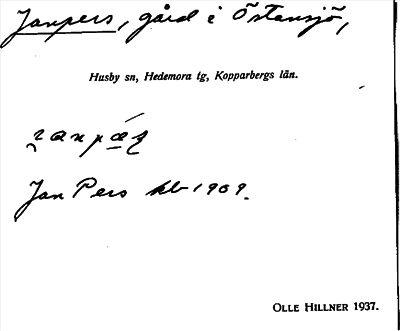 Janpers, gård i Östansjö,
Husby sn, Hedemora tg, Kopparbergs län.
Jan Pers klb 1909.
OLLE HILLNER 1937.